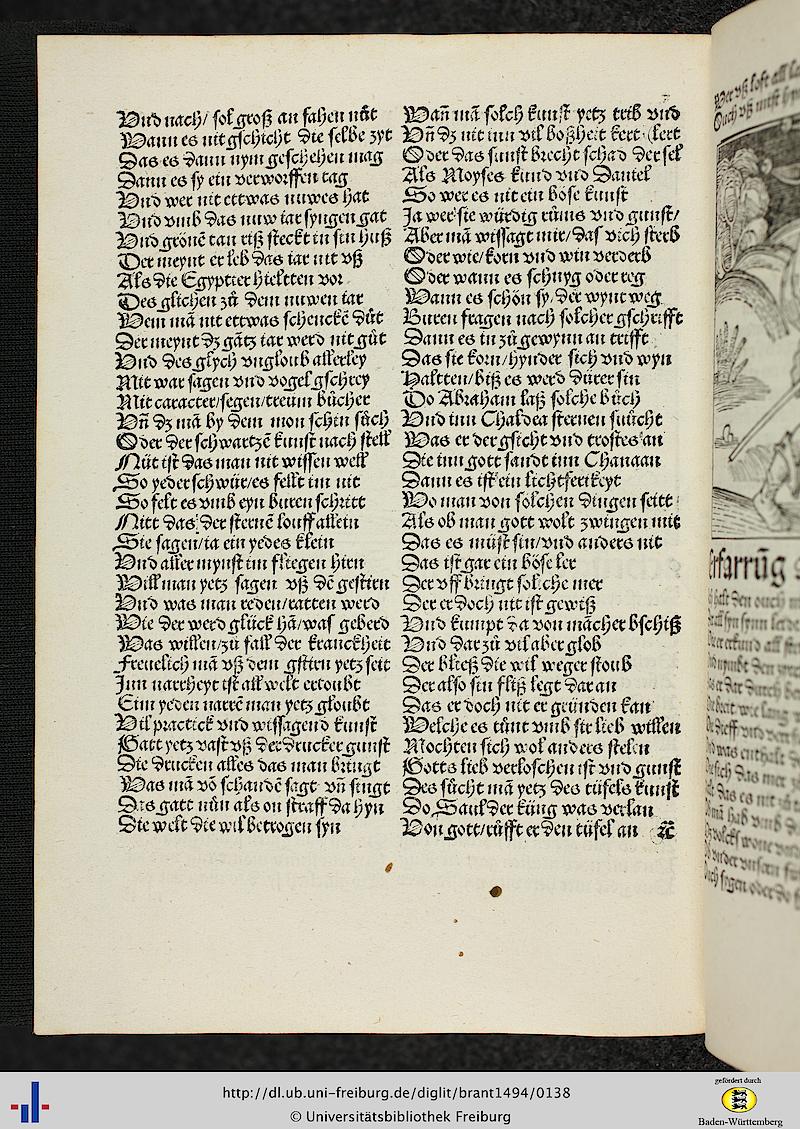 Vnd nach/ sol groß an fahen nüt
Wann es nit gschicht die selbe zyt
Das es dann nym geschehen mag
Dann es sy ein verworffen tag
Vnd wer nit ettwas nuwes hat
Vnd vmb das nuw iar syngen gat
Vnd gröne tan riß steckt in sin huß
Der meynt er leb das iar nit vß
Als die Egyptier hieltten vor
Des glichen zů dem nuwen iar
Wem mā nit ettwas schenckē důt
Der meynt dz gātz iar werd nit gůt
Vnd des glych vngloub allerley
Mit war sagen vnd vogel gschrey
Mit caracter/segen/treum bücher
Vn̄ dz mā by dem mon schin sůch
Oder der schwartzē kunst nach stell
Nüt ist das man nit wissen well
So yeder schwür/es fellt im nit
So felt es vmb eyn buren schritt
Nitt das der sternē louff allein
Sie sagen/ia ein yedes klein
Vnd aller mynst im fliegen hirn
Will man yetz sagen vß dē gestirn
Vnd was man reden/ratten werd
Wie der werd glück hā/was geberd
Was willen/zů fall der kranckheit
Freuelich mā vß dem gstirn yetz seit
Inn narrheyt ist all welt ertoubt
Eim yeden narrē man yetz gloubt
Vil practick vnd wissagend kunst
Gatt yetz vast vß der drucker gunst
Die drucken alles das man bringt
Was mā vō schandē sagt vn̄ singt
Das gatt nůn als on straff da hyn
Die welt die wil betrogen syn
Wan̄ mā solch kunst yetz trib vnd
Vn̄ dz nit inn vil boßheit kert (lert
Oder das sunst brecht schad der sel
Als Moyses kund vnd Daniel
So wer es nit ein böse kunst
Ja wer sie würdig růms vnd gunst/
Aber mā wissagt mir/das vich sterb
Oder wie/korn vnd win verderb
Oder wann es schnyg oder reg
Wann es schön sy/der wynt weg
Buren fragen nach solcher gschrifft
Dann es in zů gewynn an trifft
Das sie korn/hynder sich vnd wyn
Haltten/biß es werd dürer sin
Do Abraham laß solche bůch
Vnd inn Chaldea sternen sůcht
Was er der gsicht vnd trostes an
Die inn gott sandt inn Chanaan
Dann es ist ein lichtfertikeyt
Wo man von solchen dingen seitt
Als ob man gott wolt zwingen mit
Das es müst sin/vnd anders nit
Das ist gar ein böse ler
Der vff bringt solche mer
Der er doch nit ist gewiß
Vnd kumpt da von mācher bschiß
Vnd dar zů vil aber glob
Der bließ die wil weger stoub
Der also sin fliß legt dar an
Das er doch nit er gründen kan
Welche es tůnt vmb sir lieb willen
Mochten sich wol anders stelen
Gotts lieb verloschen ist vnd gunst
Des sůcht mā yetz des tüfels kunst
Do Saul der küng was verlan
Von gott/růfft er den tüfel an ⁊c̄
Erfarrūg
http://dl.ub.uni-freiburg.de/diglit/brant1494/0138
© Universitätsbibliothek Freiburg
gefördert durch
Baden-Württemberg